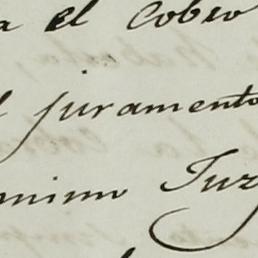 a el cobro
l juramento
nimo Juz